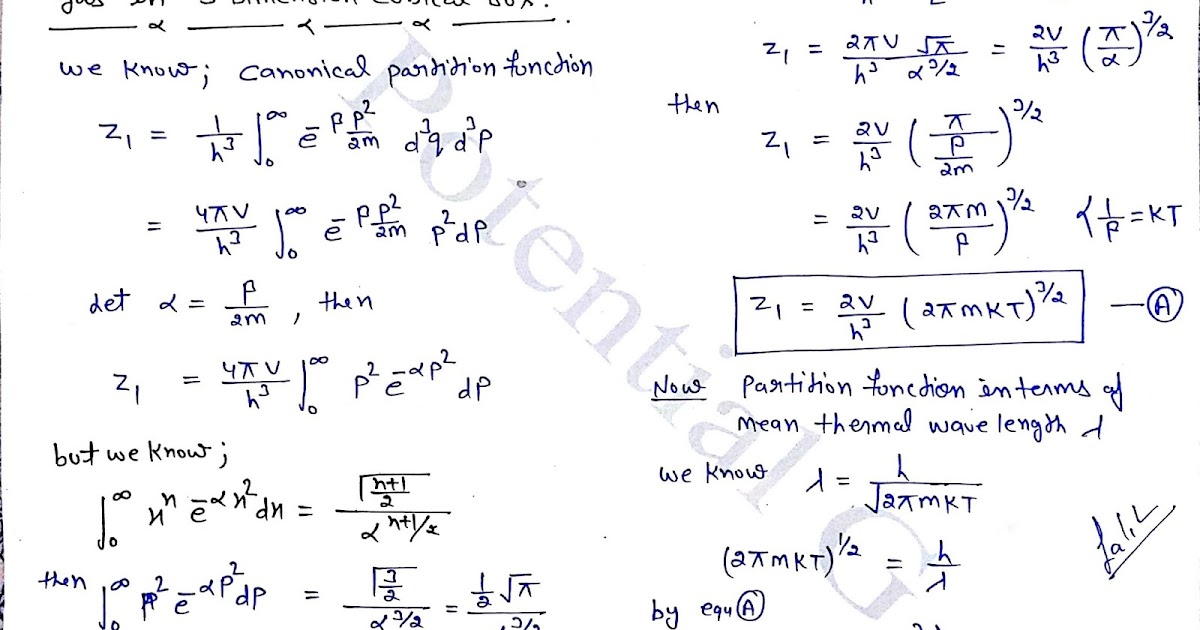 gas in 3 dimension cubical box.
we know; canonical partition function
Z₁ = 1/h³ ∫₀^∞ e^-β p²/2m d³q d³p
= 4πV/h³ ∫₀^∞ e^-β p²/2m p²dp
Let α = β/2m , then
Z₁ = 4πV/h³ ∫₀^∞ p² e^-αp² dp
but we know;
∫₀^∞ x^n e^-αx² dx = Γ(n+1/2) / α^n+1/2
then ∫₀^∞ p² e^-αp² dp = Γ(3/2) / α^3/2 = 1/2 √π
Z₁ = 2πV/h³ √π/α^3/2 = 2V/h³ (π/α)^3/2
then
Z₁ = 2V/h³ (π / β/2m)^3/2
= 2V/h³ (2πm/β)^3/2 { 1/β = KT
Z₁ = 2V/h³ (2πmKT)^3/2 — Ⓐ
Now Partition function in terms of
mean thermal wave length λ
we know λ = h/√2πmKT
(2πmKT)^1/2 = h/λ
by equ Ⓐ
Potential G